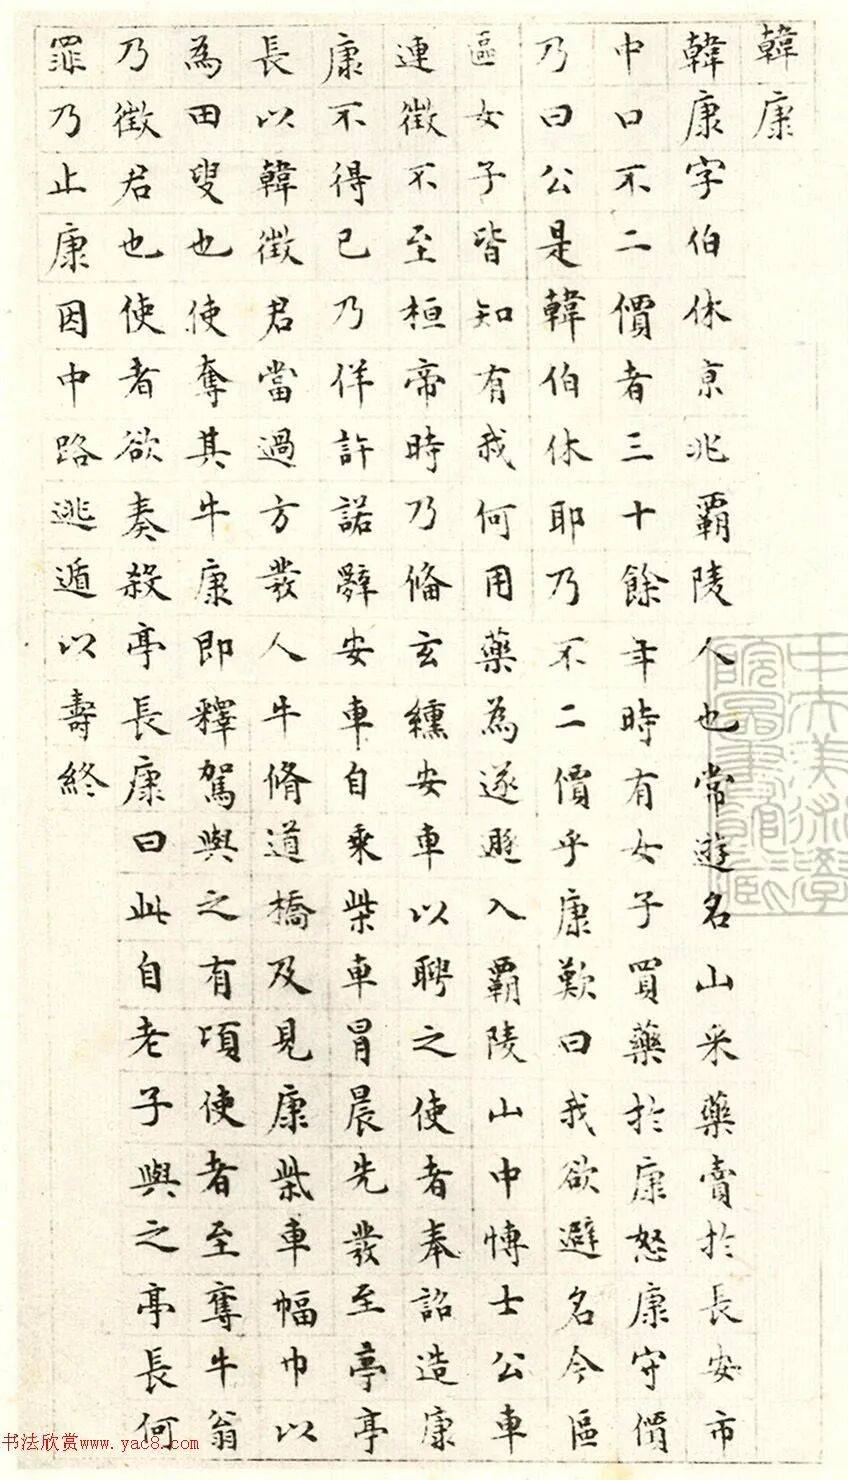 韓康
韓康字伯休京兆覇陵人也常遊名山采藥賣於長安市
中口不二價者三十餘年時有女子買藥於康怒康守價
乃曰公是韓伯休耶乃不二價乎康歎曰我欲避名今區
區女子皆知有我何用藥為遂遯入覇陵山中博士公車
連徵不至桓帝時乃俻玄纁安車以聘之使者奉詔造康
康不得已乃佯許諾辭安車自乘柴車冒晨先發至亭亭
長以韓徵君當過方發人牛脩道橋及見康柴車幅巾以
為田叟也使奪其牛康即釋駕與之有頃使者至奪牛翁
乃徵君也使者欲奏殺亭長康曰此自老子與之亭長何
罪乃止康因中路逃遁以壽終
中央美術學
院圖書館藏
书法欣赏www.yac8.com